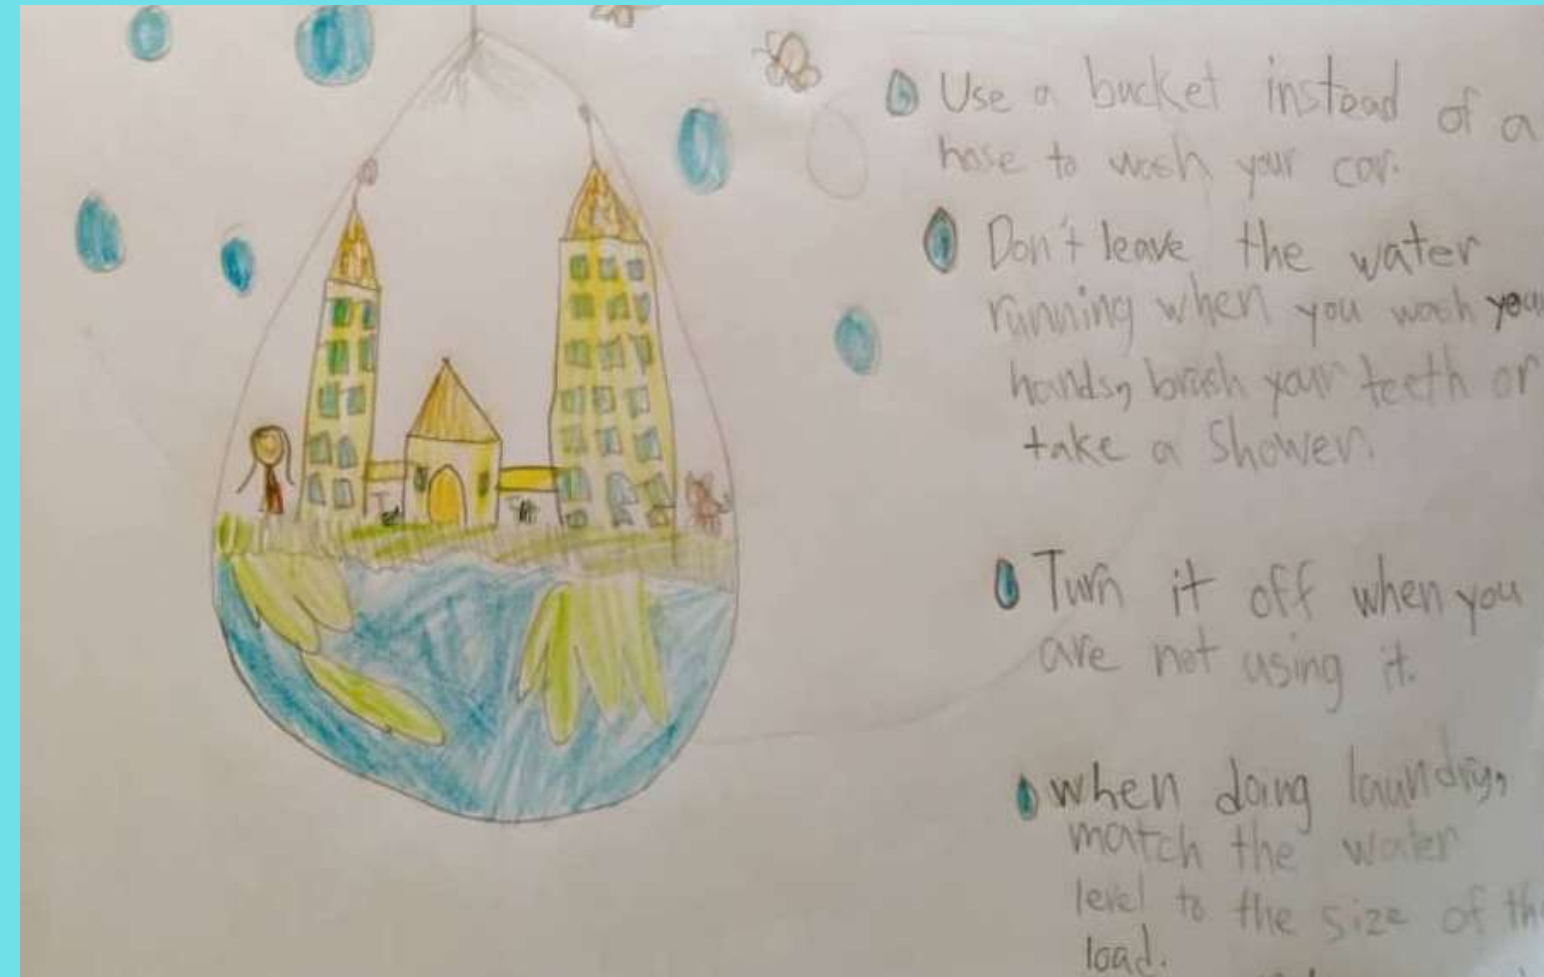 Use a bucket instead of a
hose to wash your car.
Don't leave the water
running when you wash your
hands, brush your teeth or
take a Shower.
Turn it off when you
are not using it.
when doing laundry,
match the water
level to the size of the
load.